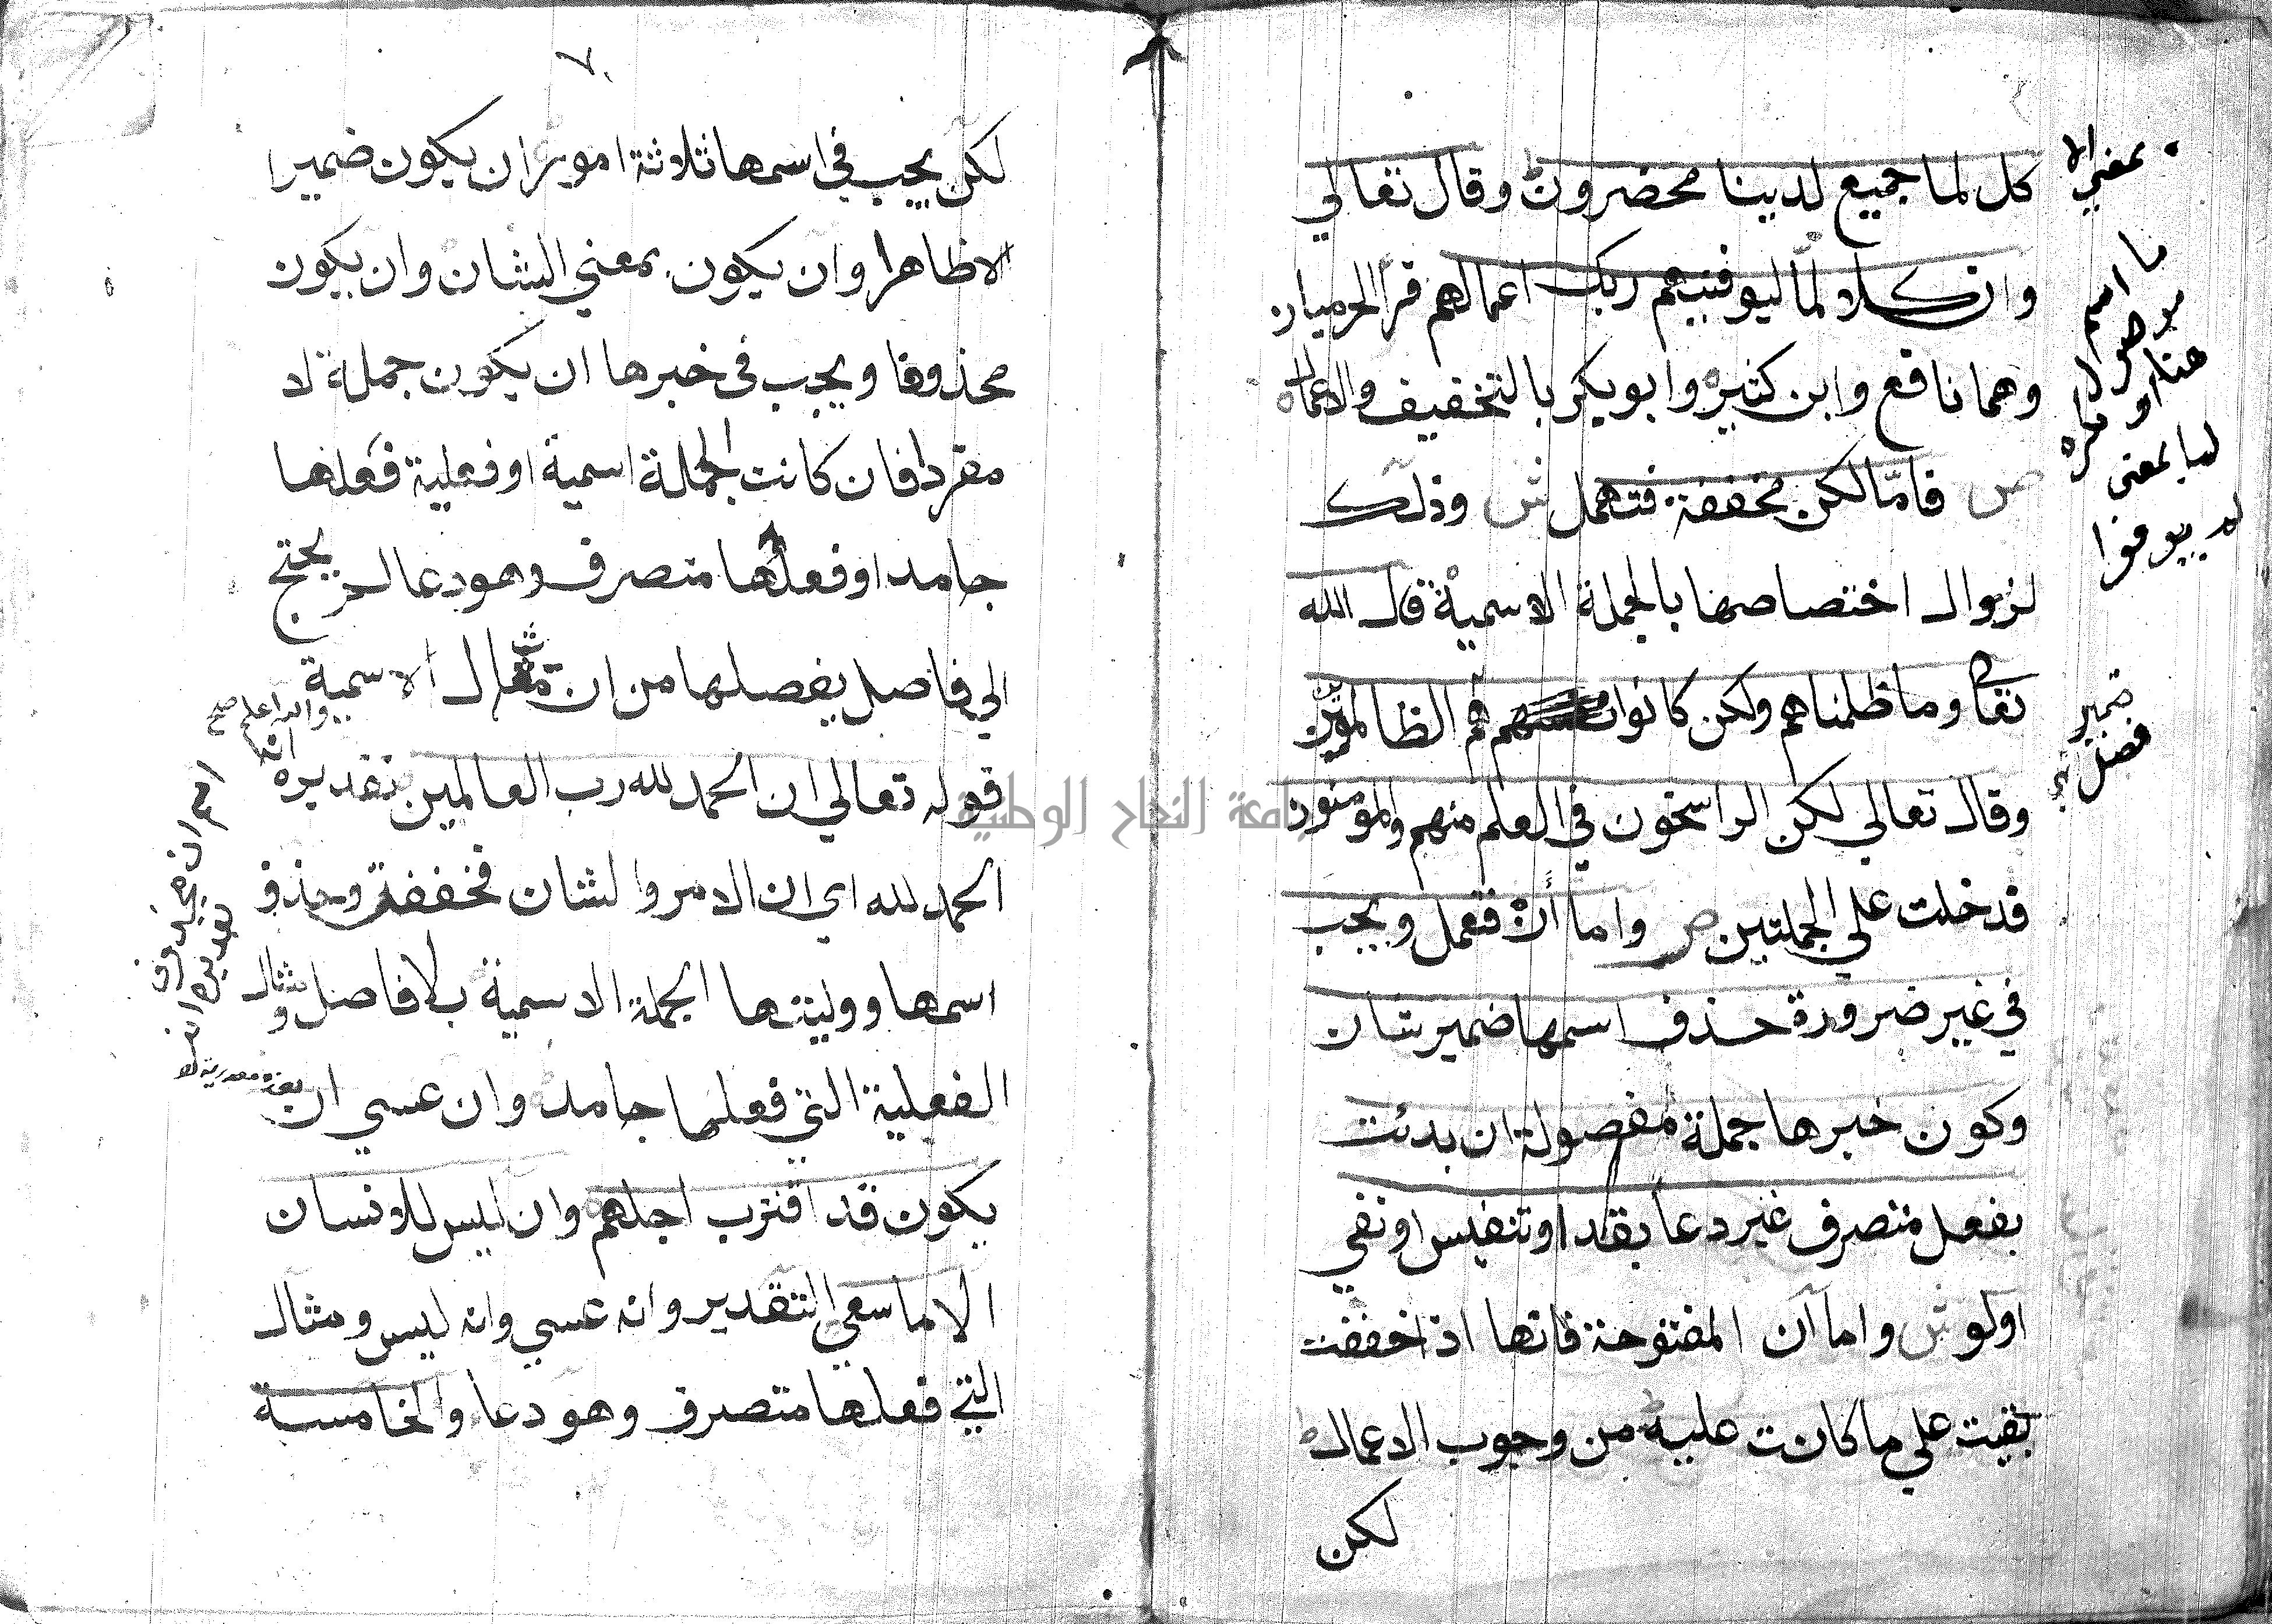 كل لما جميع لدينا محضرون وقال تعالي
وان كلا لما ليوفينهم ربك اعمالهم قرا الحرميان
وهما نافع وابن كثير وابو بكر بالتخفيف والاعمال
ص فامّا لكن مخففة فتهمل ش وذلك
لزوال اختصاصها بالجملة الاسمية قال الله
تعا وما ظلمناهم ولكن كانوا هم الظالمين
وقال تعالي لكن الراسخون في العلم منهم والمومنون
فدخلت علي الجملتين ص واما أن فتعمل ويجب
في غير ضرورة حذف اسمها ضمير شان
وكون خبرها جملة مفصولة ان بدئت
بفعل متصرف غير دعا بقد او تنفيس او نفي
او لو ش واما ان المفتوحة فانها اذا خففت
بقيت علي ما كانت عليه من وجوب الاعمال
لكن
بمعني الا
ما اسم
موصول
هنا او نكره
لما بمعنى
ضمير
فصل
٧
لكن يجب في اسمها ثلاثة امور ان يكون ضميرا
لا ظاهرا وان يكون بمعني الشان وان يكون
محذوفا ويجب في خبرها ان يكون جملة لا
مفردا فان كانت الجملة اسمية او فعلية فعلها
جامد او فعلها متصرف وهو دعا لم يحتج
الي فاصل يفصلها من ان مثال الاسمية
قوله تعالي ان الحمد لله رب العالمين تقديره انه
الحمد لله اي ان الامر والشان فخففت وحذف
اسمها ووليتها الجملة الاسمية بلا فاصل ومثال
الفعلية التي فعلها جامد وان عسي ان
يكون قد اقترب اجلهم وان ليس للانسان
الا ما سعي التقدير وانه عسي وانه ليس ومثال
التي فعلها متصرف وهو دعا والخامسة
والله اعلم صح
اسم ان محذوف
تقديره انه
جامعة النجاح الوطنية